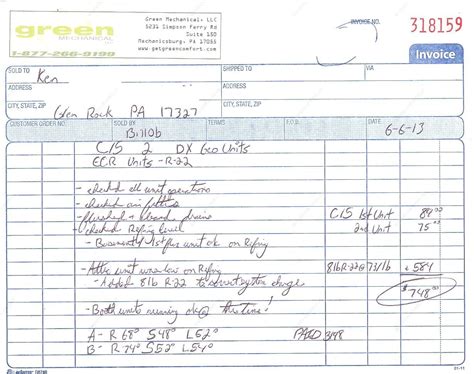 green
MECHANICAL, LLC
1-877-266-9199
Green Mechanical, LLC
5231 Simpson Ferry Rd
Suite 150
Mechanicsburg, PA 17055
www.getgreencomfort.com
INVOICE NO. 318159
Invoice
SOLD TO Ken
SHIPPED TO
VIA
ADDRESS
ADDRESS
CITY, STATE, ZIP Glen Rock PA 17327
CITY, STATE, ZIP
CUSTOMER ORDER NO.
SOLD BY
TERMS
F.O.B.
DATE 6-6-13
C/S 2 DX Geo Units
ECR Units - R-22
- checked all unit operations
- checked air filters
- flushed & drains
- checked Refrig level
- Basement/1st flr unit ok on Refrig
C/S 1st Unit 89 00
2nd Unit 75 00
- Attic unit was low on Refrig
- Added 8lb R-22 to system charge
8lb R-22 @ 73/lb 584
$748 00
- Both units running ok @ this time!
A- R 68° S 48° L 52°
B- R 74° S 52° L 54°
PAID